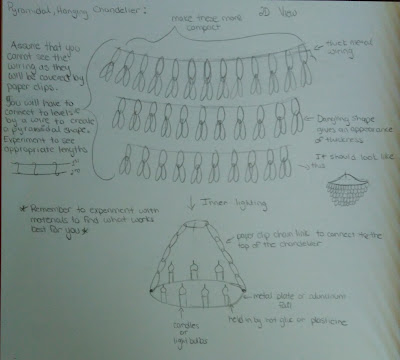 Pyramidal, Hanging Chandelier:
2D View
make these more
compact
Assume that you
cannot see the
wiring as they
will be covered by
paper clips.
thick metal
wiring
You will have to
connect to levels
by a wire to create
a pyramidal shape.
Experiment to see
appropriate lengths
Dangling shape
gives an appearance
of thickness
It should look like
this
* Remember to experiment with
materials to find what works
best for you *
Inner lighting
paper clip chain link to connect to the
top of the chandelier
metal plate or aluminum
candles
or
light bulbs
held in by hot glue or plasticine